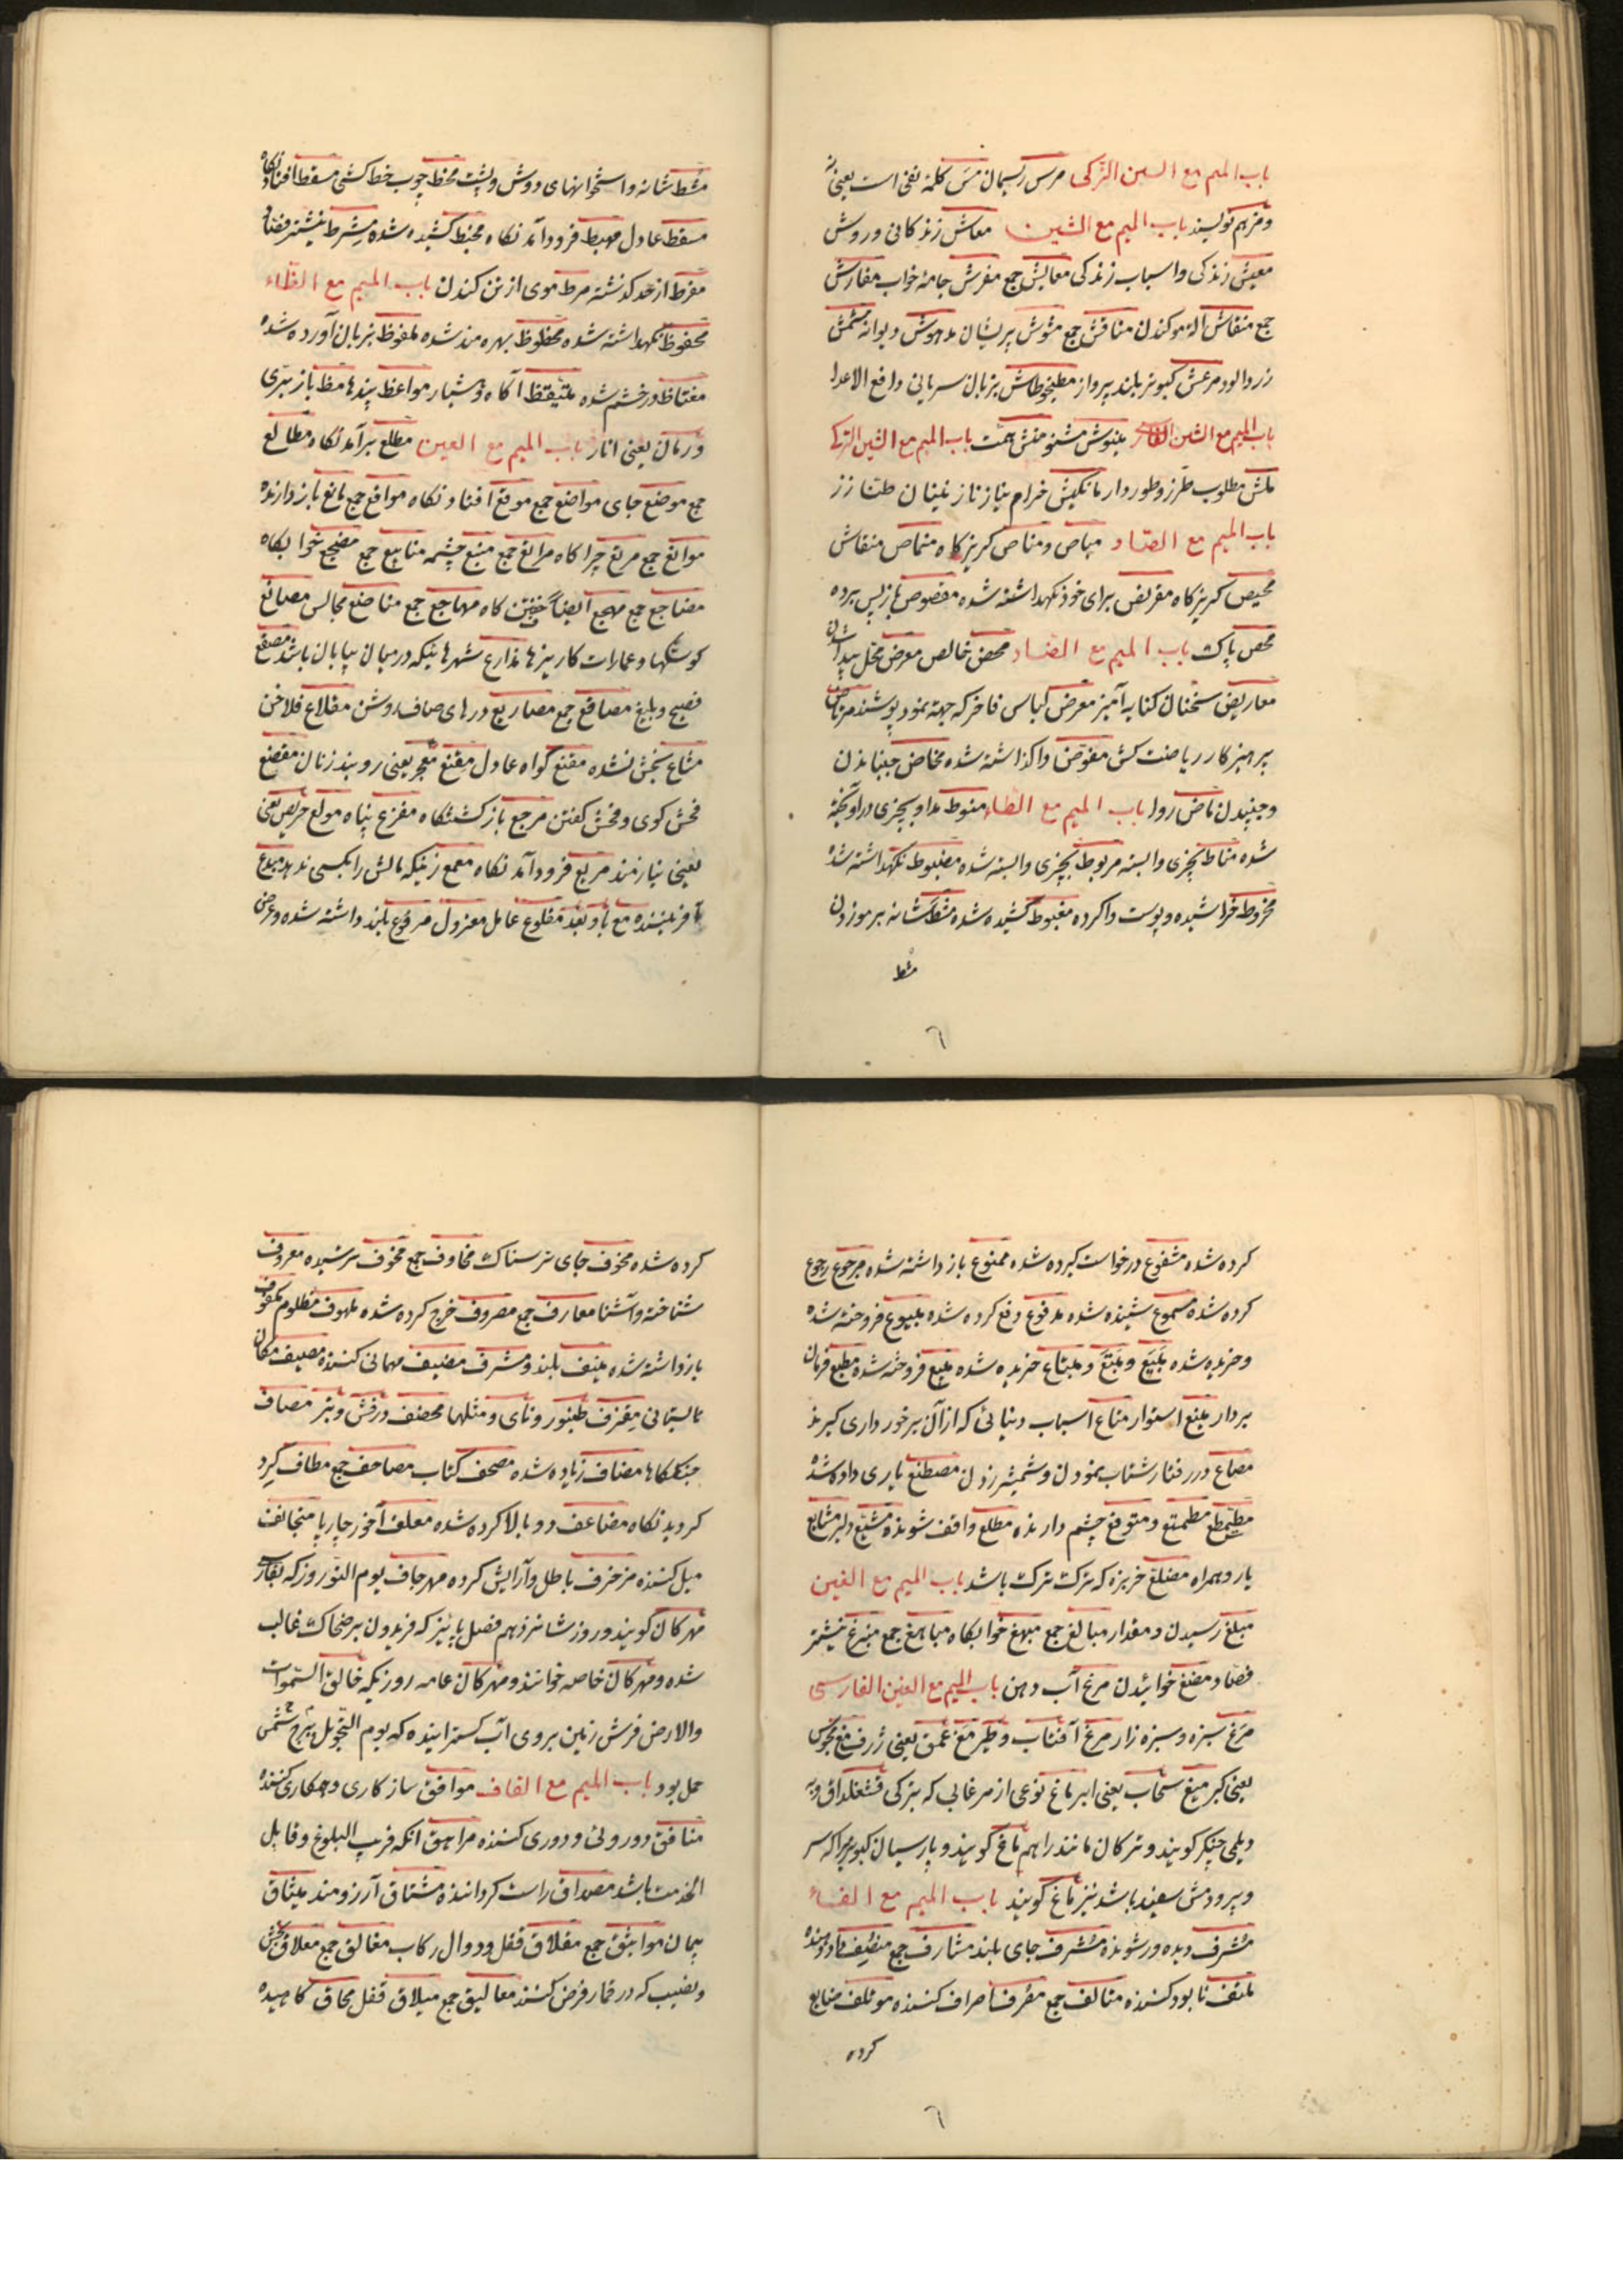 باب المیم مع السین الترکی مرس ریسمان مس کلمهٔ نفی است یعنی نه
و مزهم نویسند باب المیم مع الشین معاش زندکانی و روش
معیش زندکی و اسباب زندکی معایش جمع مفرش جامهٔ خواب مفارش
جمع منقاش آلهٔ موکندن مناقش جمع مشوش پریشان مدهوش دیوانه مشمش
زردالود مرعش کبوتر بلند پرواز مطیخوطاش بزبان سریانی دافع الاعدا
باب المیم مع الشین الفارسی منیوش مشنو منش همت باب المیم مع الشین الترکی
ملش مطلوب طرز و طور دار مانکیش خرام بناز نازنینان طناز
باب المیم مع الصاد میاص و مناص کریزکاه منماص منقاش
محیص کریزکاه مقربض برای خود نکهداشته شده مقصوص بازپس برده
محص پاک باب المیم مع الضاد محض خالص معرض محل پیدا شدن
معاریض سخنان کنایه آمیز معرض لباس فاخر که جهته نمود پوشند مرتاض
پرهیزکار ریاضت کش مفوض واکذاشته شده مخاض جنبانیدن
و جنبیدن ماض روا باب المیم مع الطاء منوط مداو بچیزی در آویخته
شده مناط بچیزی وابسته مربوط بچیزی وابسته شده مضبوط نکهداشته شده
مخروط خراشیده و پوست واکرده مغبوط کشیده شده مشط شانه بر موزدن
مشط
٦
مشط شانه و استخوانهای دوش و پشت مخط چوب خط کشی مسقط افتادنکاه
مسقط عادل مهبط فرودآمدنکاه مخبط کشیده شده مشرط نیشتر فصاد
مفرط از حد کذشته مرط موی از تن کندن باب المیم مع الظاء
محفوظ نکهداشته شده محظوظ بهره مند شده ملفوظ بزبان آورده شده
مغتاظ در خشم شده متیقظ آکاه و هشیار مواعظ پندها مظ باز بری
و رمان یعنی انار باب المیم مع العین مطلع برآمدنکاه مطالع
جمع موضع جای مواضع جمع موقع افتادنکاه مواقع جمع مانع بازدارنده
موانع جمع مرتع چراکاه مراتع جمع منبع چشمه منابیع جمع مضجع خوابکاه
مضاجع جمع مهجع ایضا خفتن کاه مهاجع جمع مناضع مجالس مصانع
کوشکها و عمارات کاریزها مذارع شهرهائیکه در میان بیابان باشد مصقع
فصیح و بلیغ مصاقع جمع مصاریع درهای صاف روشن مقلاع فلاخن
مشاع بخش نشده مقنع کواه عادل مقنع معجر یعنی روبند زنان مقصع
فحش کوی و فحش کفتن مرجع بازکشتنکاه مفزع پناه مولع حریص یعنی
یعنی نیازمند مربع فرودآمدنکاه معمع زنیکه مالش را بکسی ندهد مبدع
آفریننده مع با و بعد مخلوع عامل معزول مرفوع بلند داشته شده و عرض
کرده شده مشفوع درخواست کرده شده ممنوع بازداشته شده مرجوع رجوع
کرده شده مسموع شنیده شده مدفوع دفع کرده شده مبیوع فروخته شده
و خریده شده مبیع و مبتع و مبتاع خریده شده مبیع فروخته شده مطیع فرمان
بردار متبع استوار متاع اسباب دنیائی که از آن برخورداری کیرند
مصاع در رفتار شتاب نمودن و شمشیر زدن مصطنع یاری داده شده
مطمطع مطمتع و متوقع چشم دارنده مطلع واقف شونده مشیع دلیر مشایع
یار و همراه مضلع خربزه که ترک ترک باشد باب المیم مع الغین
مبلغ رسیدن و مقدار مبالغ جمع مبهغ خوابکاه مباهغ جمع مبزغ نیشتر
فصاد مضغ خوائیدن مرغ آب دهن باب المیم مع الغین الفارسی
مرغ سبزه و سبزه زار مرغ آفتاب و طیر مغ عمق یعنی ژرف مغ مجوس
یعنی کبر میغ سحاب یعنی ابر ماغ نوعی از مرغابی که بترکی قشقلداق و به
دیلمی چنکر کویند و ترکان مانند را هم ماغ کویند و پارسیان کبوتریرا که سر
و پر و دمش سفید باشد نیز ماغ کویند باب المیم مع الفاء
مشرف دیده ور شونده مشرف جای بلند مشارف جمع منصف داد دهنده
متلف نابود کننده متالف جمع مصرف اصراف کننده موتلف ضایع
کرده
٦
کرده شده مخوف جای ترسناک مخاوف جمع مخوف ترسیده معروف
شناخته و آشنا معارف جمع مصروف خرج کرده شده ملهوف مظلوم مکفوف
بازداشته شده منیف بلند و مشرف مضیف مهمانی کننده مصیف مکان
تابستانی معزف طنبور و نای و مثلها مخصف درفش و نیز مصاف
جنکگاها مضاف زیاده شده مصحف کتاب مصاحف جمع مطاف کرد
کردیدنکاه مضاعف دو بالا کرده شده معلف آخور چارپا متجانف
میل کننده مزخرف باطل و آرایش کرده مهرجان یوم النوروز که بفارسی
مهرکان کویند و روز شانزدهم فصل پائیز که فریدون بر ضحاک غالب
شده و مهرکان خاصه خوانند و مهرکان عامه روزیکه خالق السموات
والارض فرش زمین بروی آب کسترانیده که یوم التحویل نیر و شمس
حمل بود باب المیم مع القاف موافق سازکاری و همکاری کننده
منافق دوروئی و دوری کننده مراهق آنکه قریب البلوغ و قابل
الخدمت باشد مصداق راست کرداننده مشتاق آرزومند میثاق
پیمان مواثیق جمع مغلاق قفل و دوال رکاب مغالق جمع معلاق بخش
و نصیب که در قمار فرض کنند معالیق جمع میلاق قفل محاق کاهیده